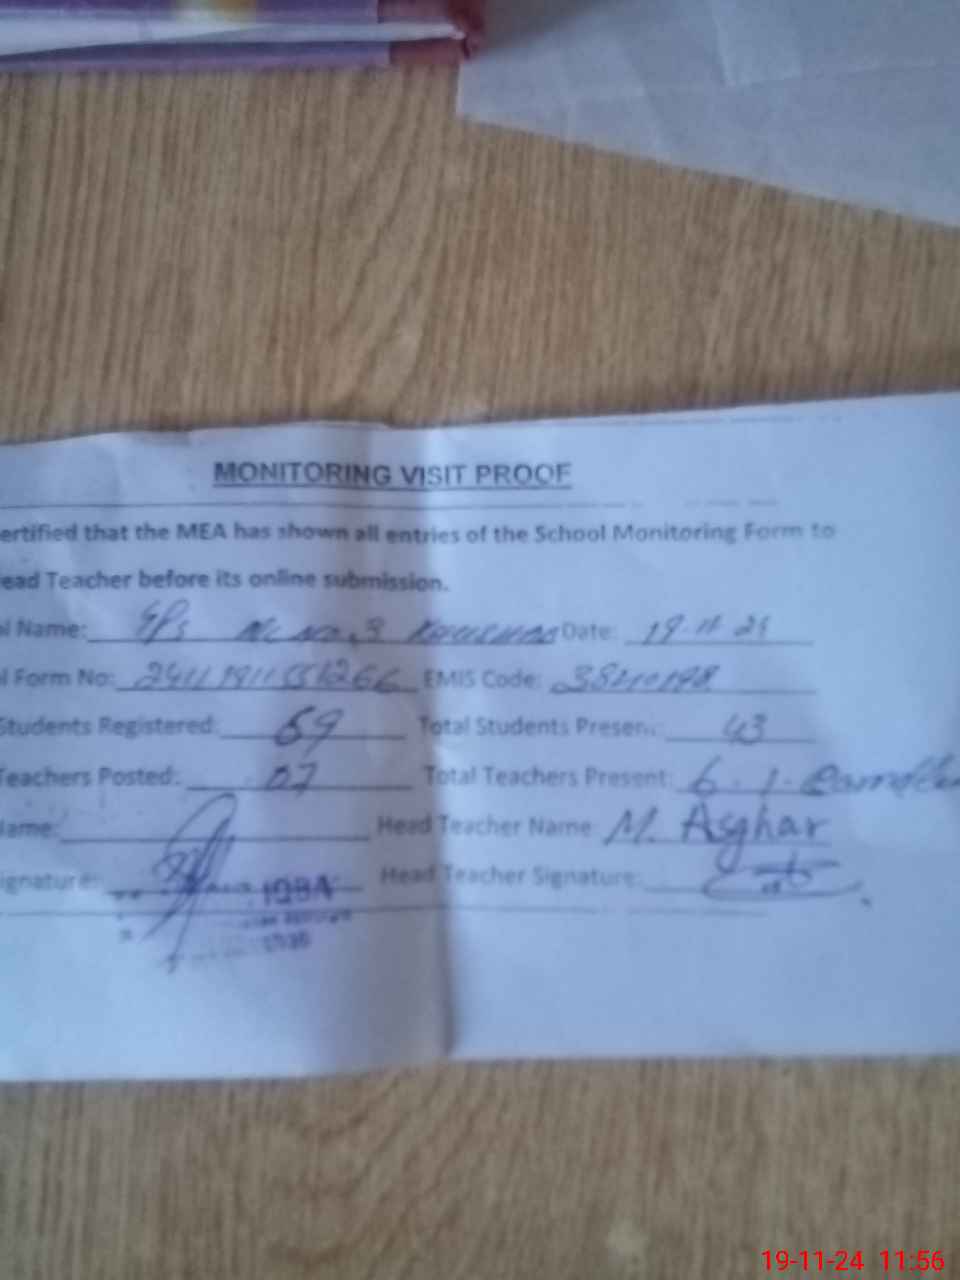 MONITORING VISIT PROOF
ertified that the MEA has shown all entries of the School Monitoring Form to
ead Teacher before its online submission.
l Name: No. 3 Date: 19-11-24
l Form No: EMIS Code:
Students Registered: 69 Total Students Present: 43
Teachers Posted: 07 Total Teachers Present: 6. 1.
ame: Head Teacher Name: M. Asghar
ignature: Head Teacher Signature:
IQBA
19-11-24 11:56